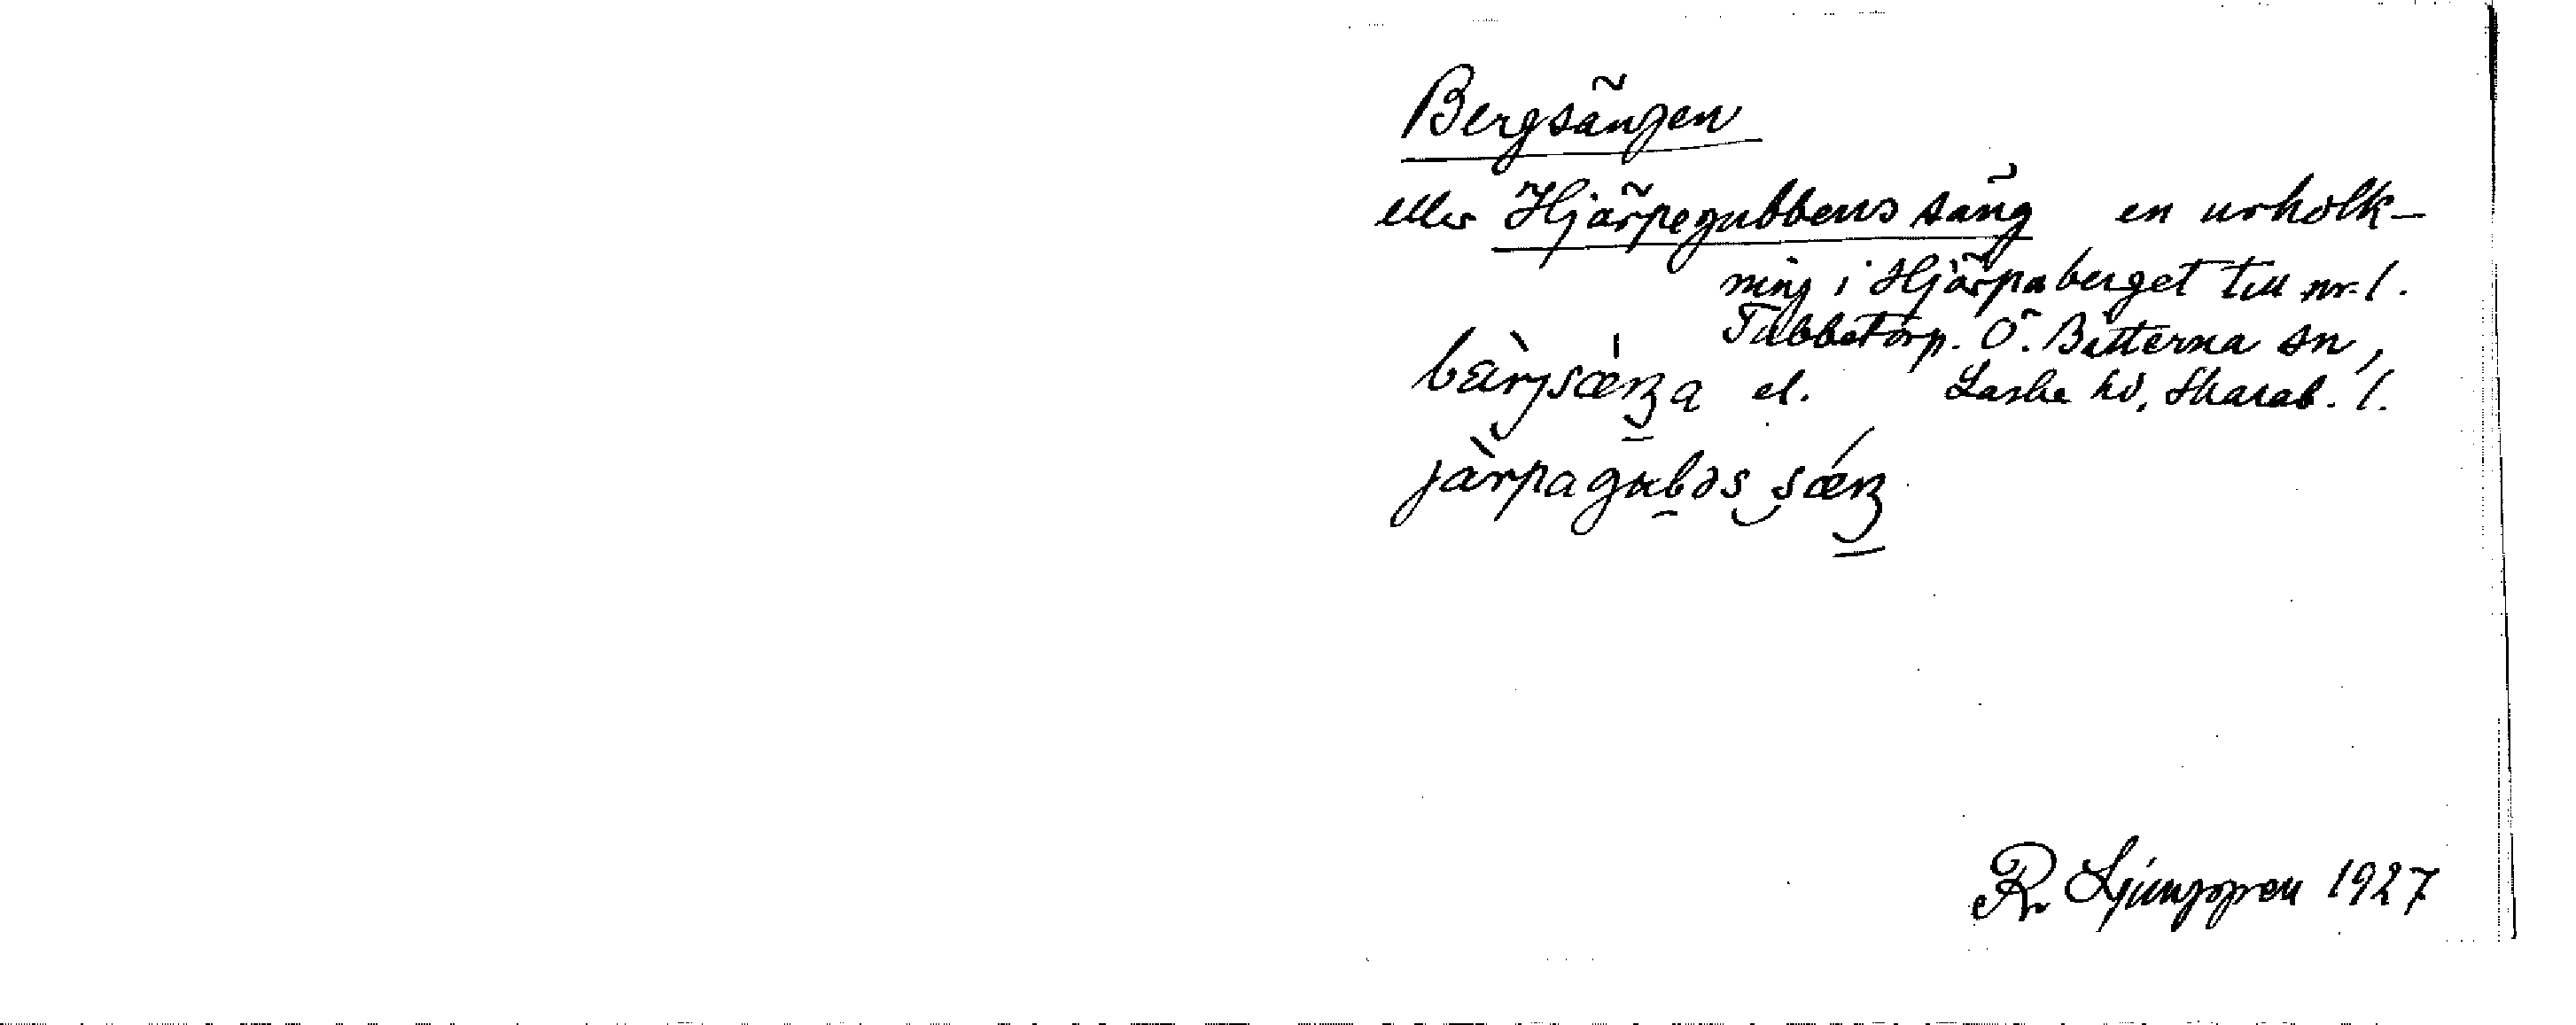 Bergsängen
eller Hjärpegubbens säng en urholk-
ning i Hjärpaberget till nr 1.
Tubbetorp. Ö. Bitterna sn,
Laske hd, Skarab. l.
bàrjsæŋa el.
jàrpagubəs sǽŋ
R Ljunggren 1927